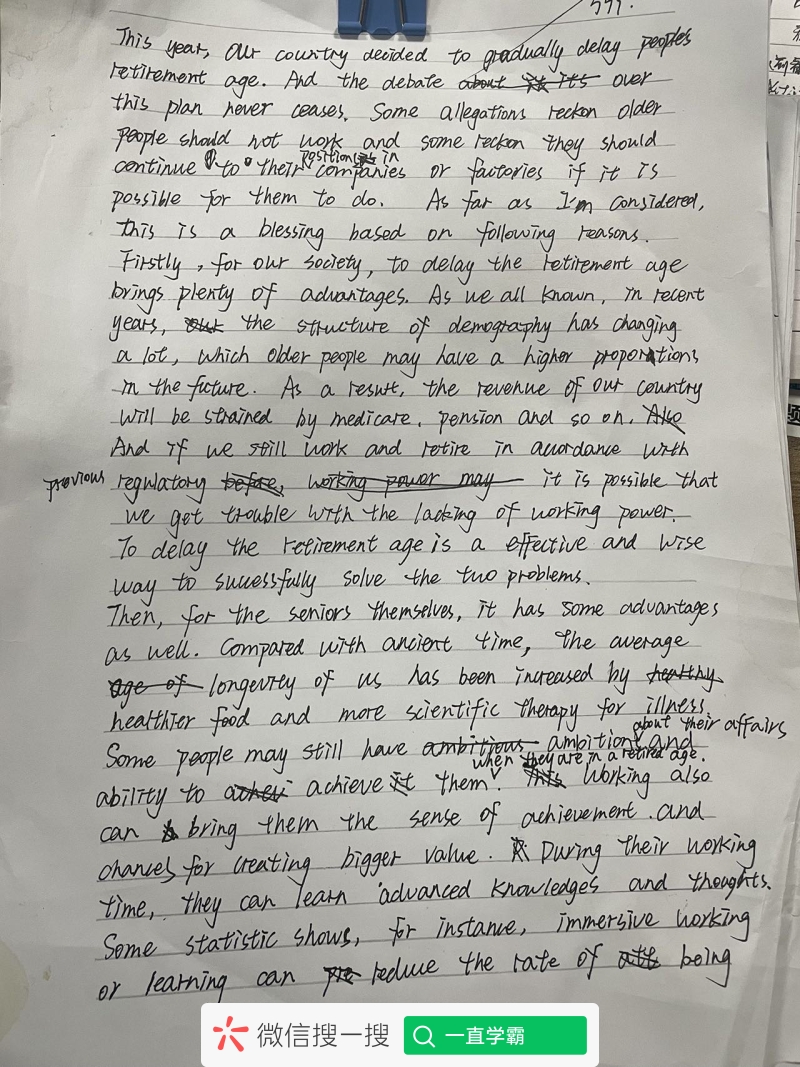 This year, our country decided to gradually delay people's
retirement age. And the debate about it it's over
this plan never ceases. Some allegations reckon older
people should not work and some reckon they should
positions in
continue to their companies or factories if it is
possible for them to do. As far as I'm considered,
this is a blessing based on following reasons.
Firstly, for our society, to delay the retirement age
brings plenty of advantages. As we all known, in recent
years, our the structure of demography has changing
a lot, which older people may have a higher proportions
in the future. As a result, the revenue of our country
will be strained by medicare, pension and so on. Also
And if we still work and retire in accordance with
previous regulatory before, working power may it is possible that
we get trouble with the lacking of working power.
To delay the retirement age is a effective and wise
way to successfully solve the two problems.
Then, for the seniors themselves, it has some advantages
as well. Compared with ancient time, the average
age of longevity of us has been increased by healthy
healthier food and more scientific therapy for illness.
about their affairs
Some people may still have ambitious ambitions and
when they are in a retired age.
ability to achieve it them. This Working also
can bring them the sense of achievement and
chances for creating bigger value. During their working
time, they can learn advanced knowledges and thoughts.
Some statistic shows, for instance, immersive working
or learning can reduce the rate of being
微信搜一搜 一直学霸